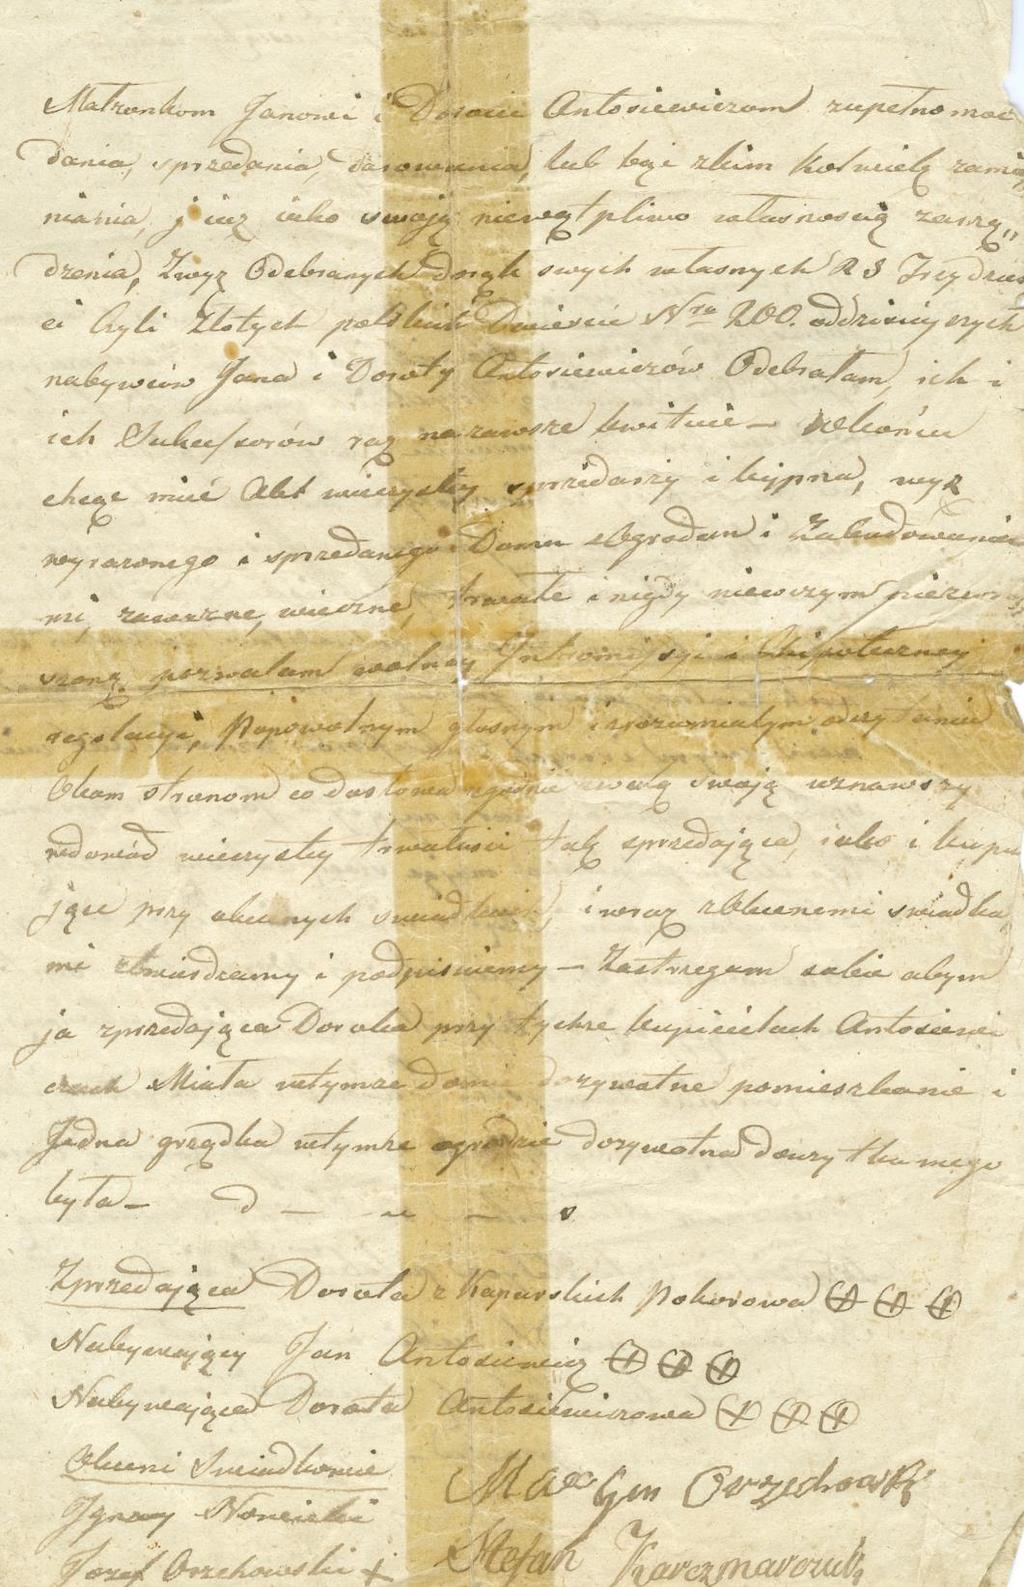 Małzonkom Janowi i Dorocie Antosiewiczom zupełno moc
dania, sprzedania, darowania, lub byź z kim kolwielz zamię
niania, j iuz iako swoją niewątpliwo własnoscią zarzą„
dzenia, Zwyz Odebranych dorąk swych własnych R S Trzydzies
ci Czyli złotych polskich Dwiescie Nro 200. od dzisieyszych
nabywców Jana i Doroty Antosiewiczów Odebrałam, ich i
ich Sukcessorów raz nazawsze kwituie – wkońcu
chcąc mieć Akt wieczystey sprzedarzy i kupna, wyz
wyrazonego i sprzedanego Domu zOgrodem i Zabudowania
mi, zawszne, wieczne, trwałe i nigdy niewczym niezwru
szone pozwalam wolney Intromissyi i Chipoteczney
regolacyi, Popowolnym głosnym i zrozumiałym odczytaniu
Obom stronom co dosłowa zgodnie zwolą swoją uznawszy
wdowód wieczystey trwałosci tak sprzedająca, iako i kupu
jące przy obecnych swiadkach, i wraz zObecnemi swiadka
mi stwierdzamy i podpisuiemy – Zastrzegam sobie abym
ja zprzedająca Dorota przy tychze kupicielach Antosiewi
czach Miała wtymze domu dozywotne pomieszkanie i
Jedna grządka wtymze ogrodzie dozywotna douzytku mego
była –
Zprzedająca Dorota z Kaparskich Pokorowa ⊕ ⊕ ⊕
Nabywający Jan Antosiewicz ⊕ ⊕ ⊕
Nabywająca Dorota Antosiewiczowa ⊕ ⊕ ⊕
Obecni Swiadkowie
Marcyn Orzechowski
Ignacy Nowicki
Stefan Karczmarczuk
Jozef Orzchowski +